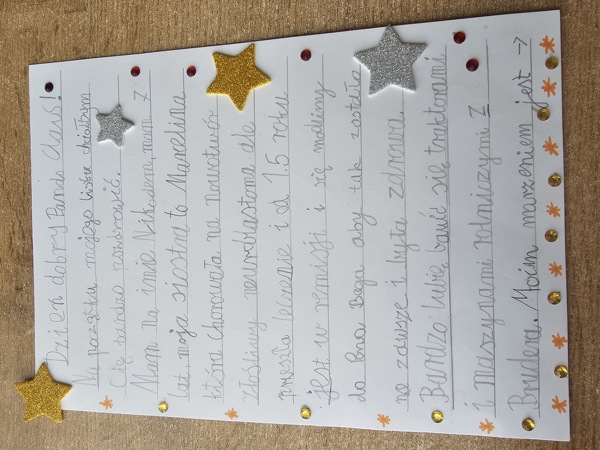 Dzień dobry Panda Claus!
Na początku mojego listu chciałbym
Cię bardzo pozdrowić.
Mam na imię Nikodem, mam 7
lat, moja siostra to Marcelina
która chorowała na nowotwór
złośliwy neuroblastoma ale
przeszła leczenie i od 1.5 roku
jest w remisji i się modlimy
do Pana Boga aby tak zostało
na zawsze i była zdrowa.
Bardzo lubię bawić się traktorami
i maszynami rolniczymi z
Brudera. Moim marzeniem jest →